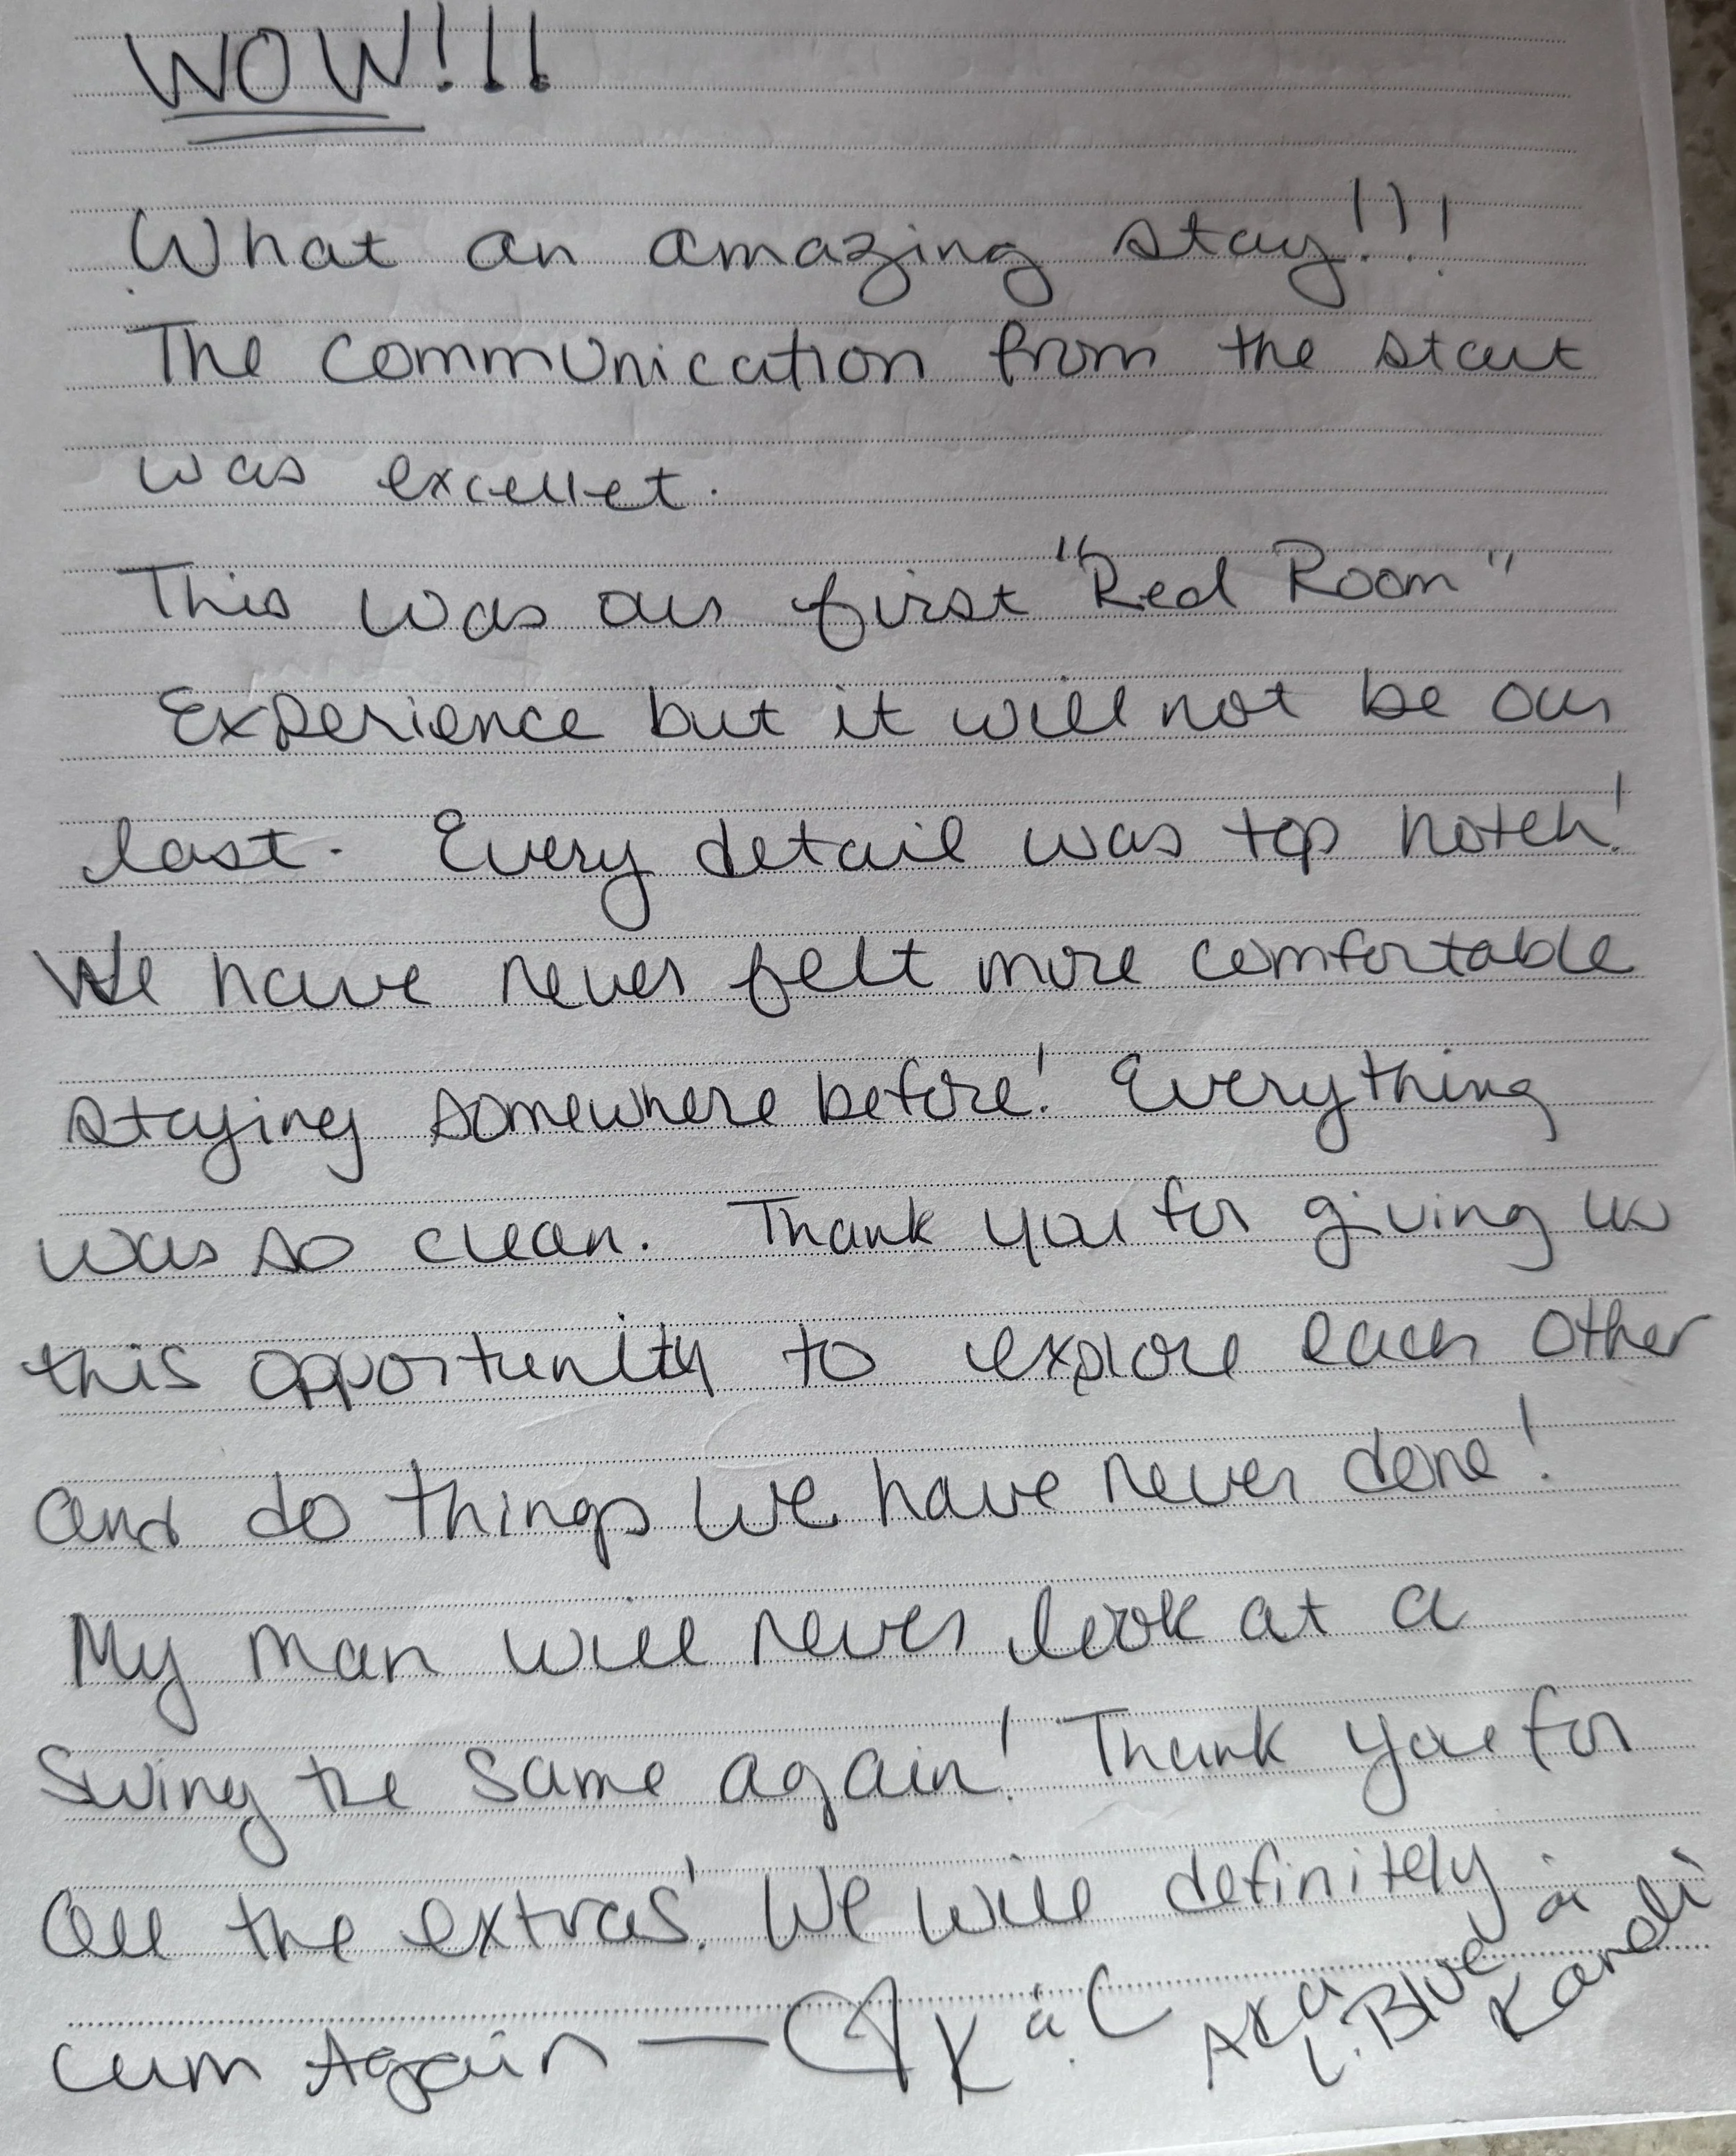 WOW!!!
What an amazing stay!!!
The communication from the start
was excellet.
This was our first "Red Room"
Experience but it will not be our
last. Every detail was top notch!
We have never felt more comfortable
staying somewhere before! Everything
was so clean. Thank you for giving us
this opportunity to explore each other
and do things we have never done!
My man will never look at a
swing the same again! Thank you for
all the extras! We will definitely
cum Again — K & C
AKA
L. Blue &
Kandi